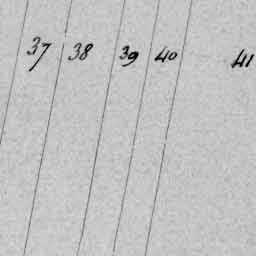 37 38 39 40 41